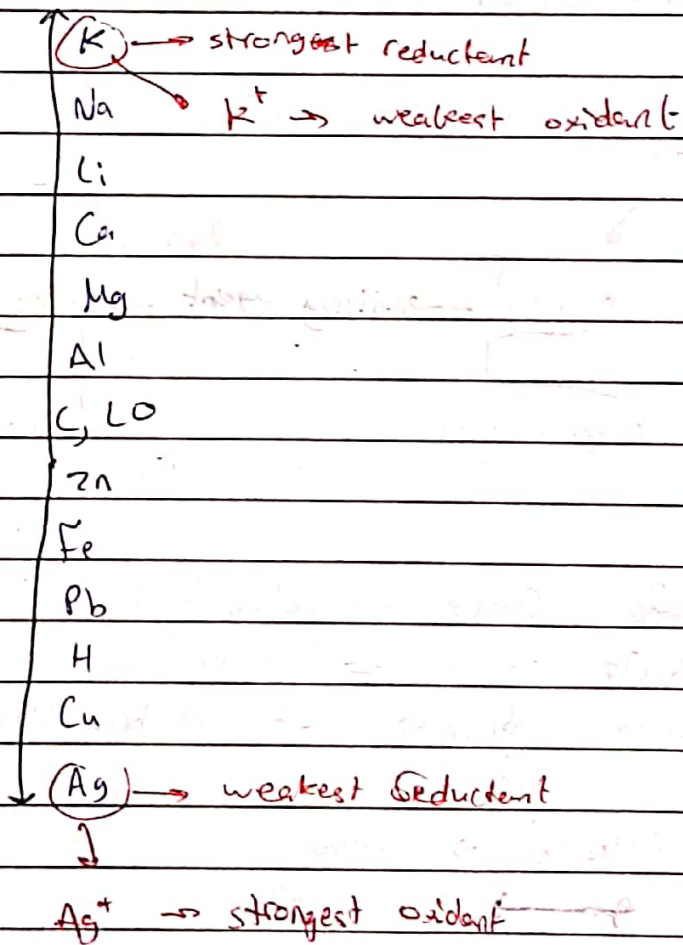 K → strongest reductant
Na K⁺ → weakest oxidant
Li
Ca
Mg
Al
C, LO
Zn
Fe
Pb
H
Cu
Ag → weakest reductant
Ag⁺ → strongest oxidant